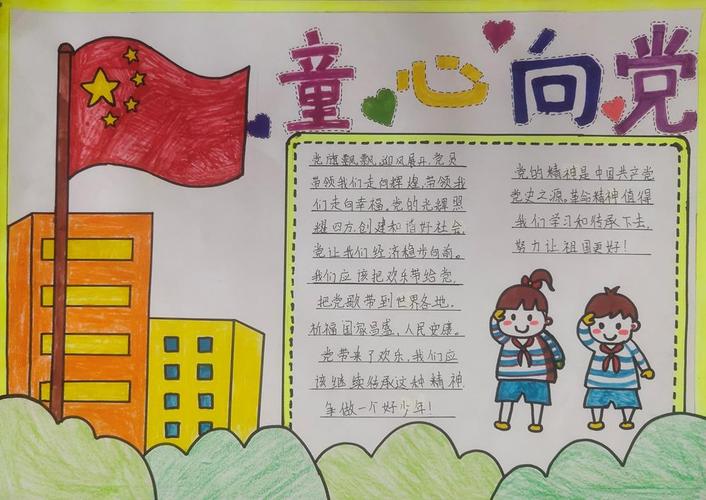 童心向党
党旗飘飘,迎风展开,党员
带领我们走向辉煌,带领我
们走向幸福,党的光辉照
耀四方,创建和谐好社会,
党让我们经济稳步向前。
我们应该把欢乐带给党,
把党歌带到世界各地。
祈福国家昌盛,人民安康。
党带来了欢乐,我们应
该继续传承这种精神
争做一个好少年!
党的精神是中国共产党
党史之源。革命精神值得
我们学习和传承下去,
努力让祖国更好!